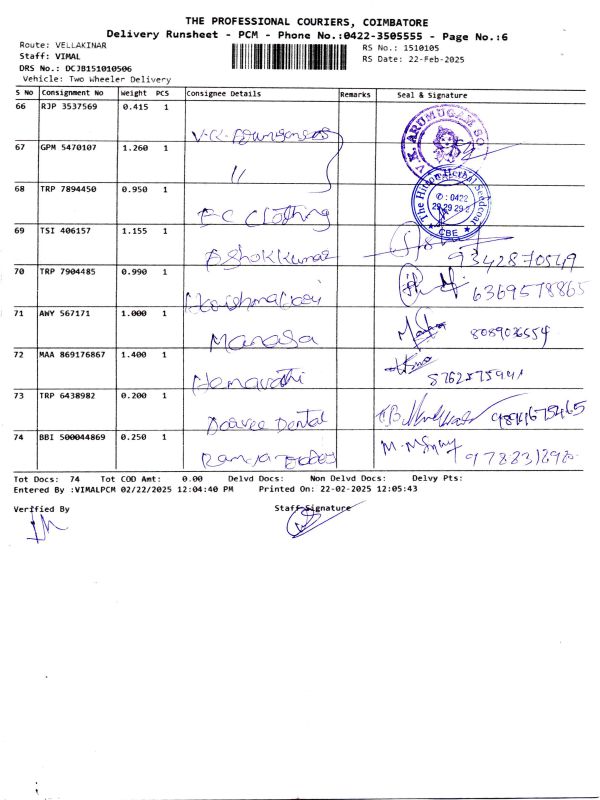 THE PROFESSIONAL COURIERS, COIMBATORE
Delivery Runsheet - PCM - Phone No.:0422-3505555 - Page No.:6
Route: VELLAKINAR
RS No.: 1510105
Staff: VIMAL
RS Date: 22-Feb-2025
DRS No.: DCJB151010506
Vehicle: Two Wheeler Delivery
S No Consignment No Weight PCS Consignee Details Remarks Seal & Signature
66 RJP 3537569 0.415 1 V.K.
V.K. ARUMUGAM SO
67 GPM 5470107 1.260 1 "
The Hilton Herbal Seedcoat
✆ : 0422
29 29 29 2
CBE
68 TRP 7894450 0.950 1 E C Clothing
69 TSI 406157 1.155 1 Ashokkumar 9342870549
70 TRP 7904485 0.990 1 6369578865
71 AWY 567171 1.000 1 Manasa 8089036554
72 MAA 869176867 1.400 1 Hemavathi
73 TRP 6438982 0.200 1 Dental
74 BBI 500044869 0.250 1
Tot Docs: 74 Tot COD Amt: 0.00 Delvd Docs: Non Delvd Docs: Delvy Pts:
Entered By :VIMALPCM 02/22/2025 12:04:40 PM Printed On: 22-02-2025 12:05:43
Verified By Staff Signature